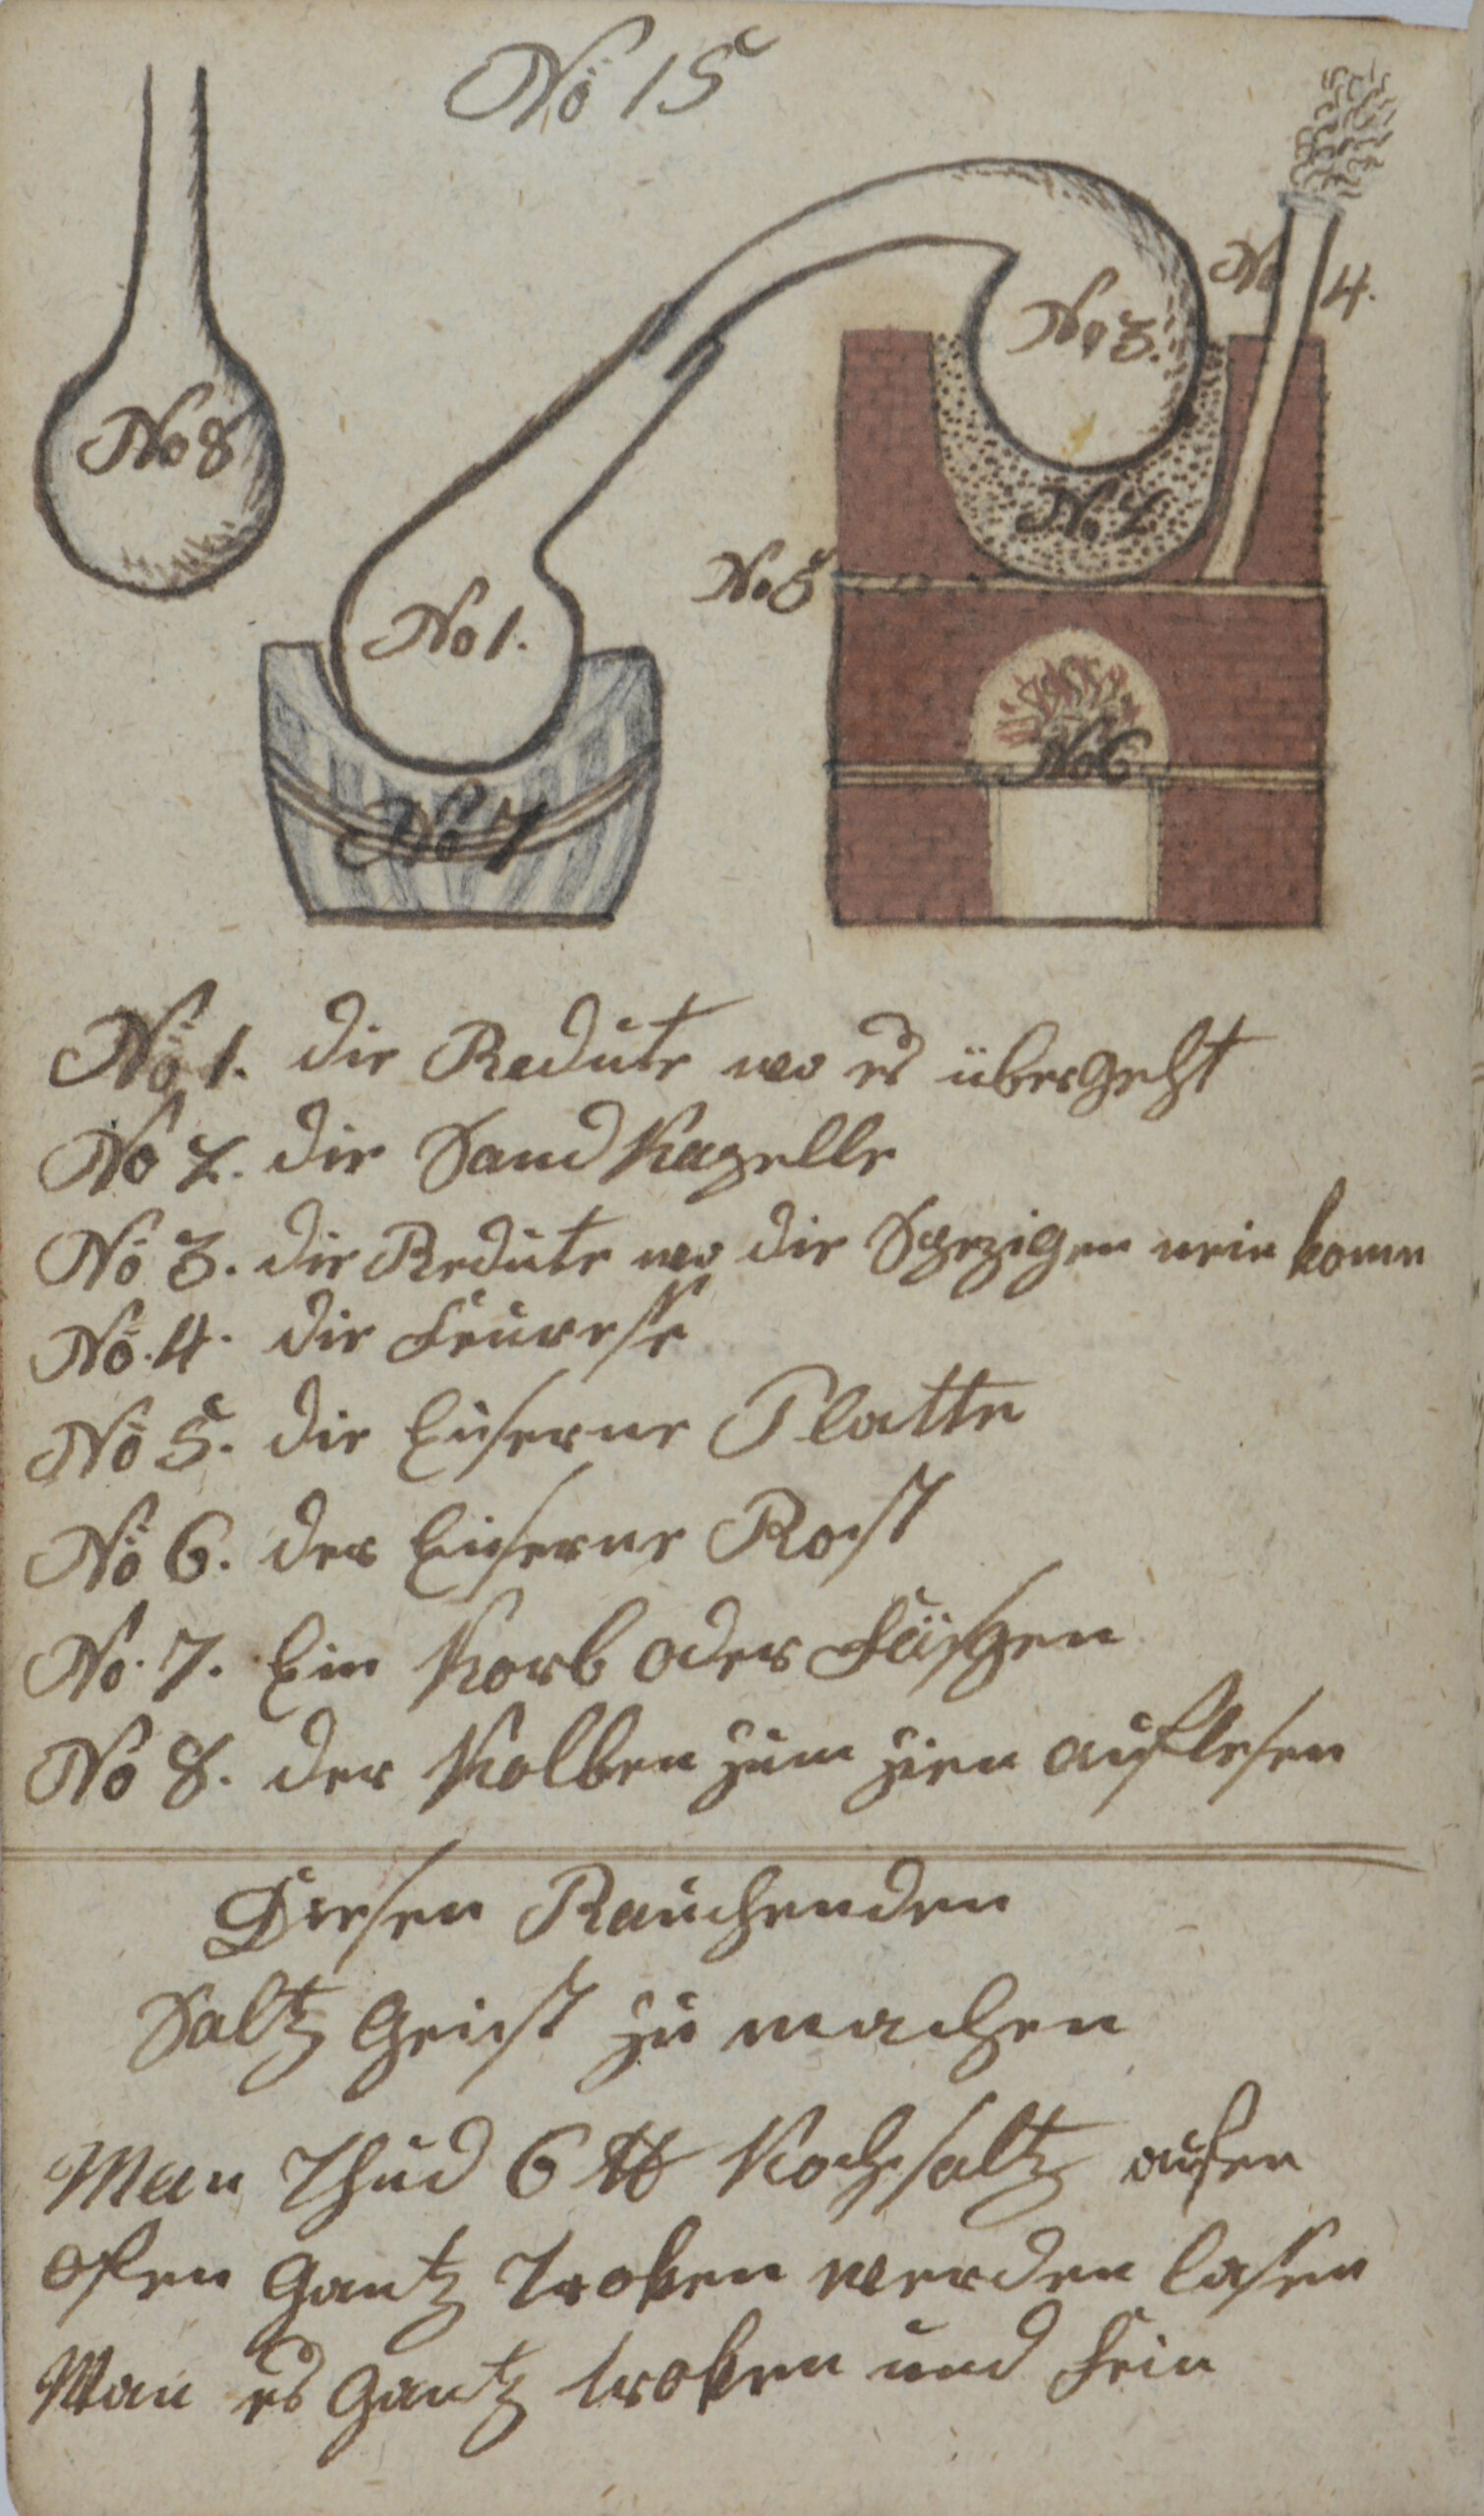 No 15
No 8
No 3.
No 4.
No 2
No 5
No 1.
No 6
No 7
No 1. die Redute wo es übergeht
No 2. die Sand Kapelle
No 3. die Redute wo die Spezigen nein komn
No. 4. die Feuresse
No 5. die Eiserne Platte
No 6. der Eiserne Rost
No. 7. Ein Korb oder Fäsgen
No 8. der Kolben zum zien auflesen
Diesen Rauchenden
Saltz Geist zu machen
Man Thud 6 ℔ Kochsaltz aufen
Ofen Gantz Troken werden lasen
Wan es Gantz troken und fein